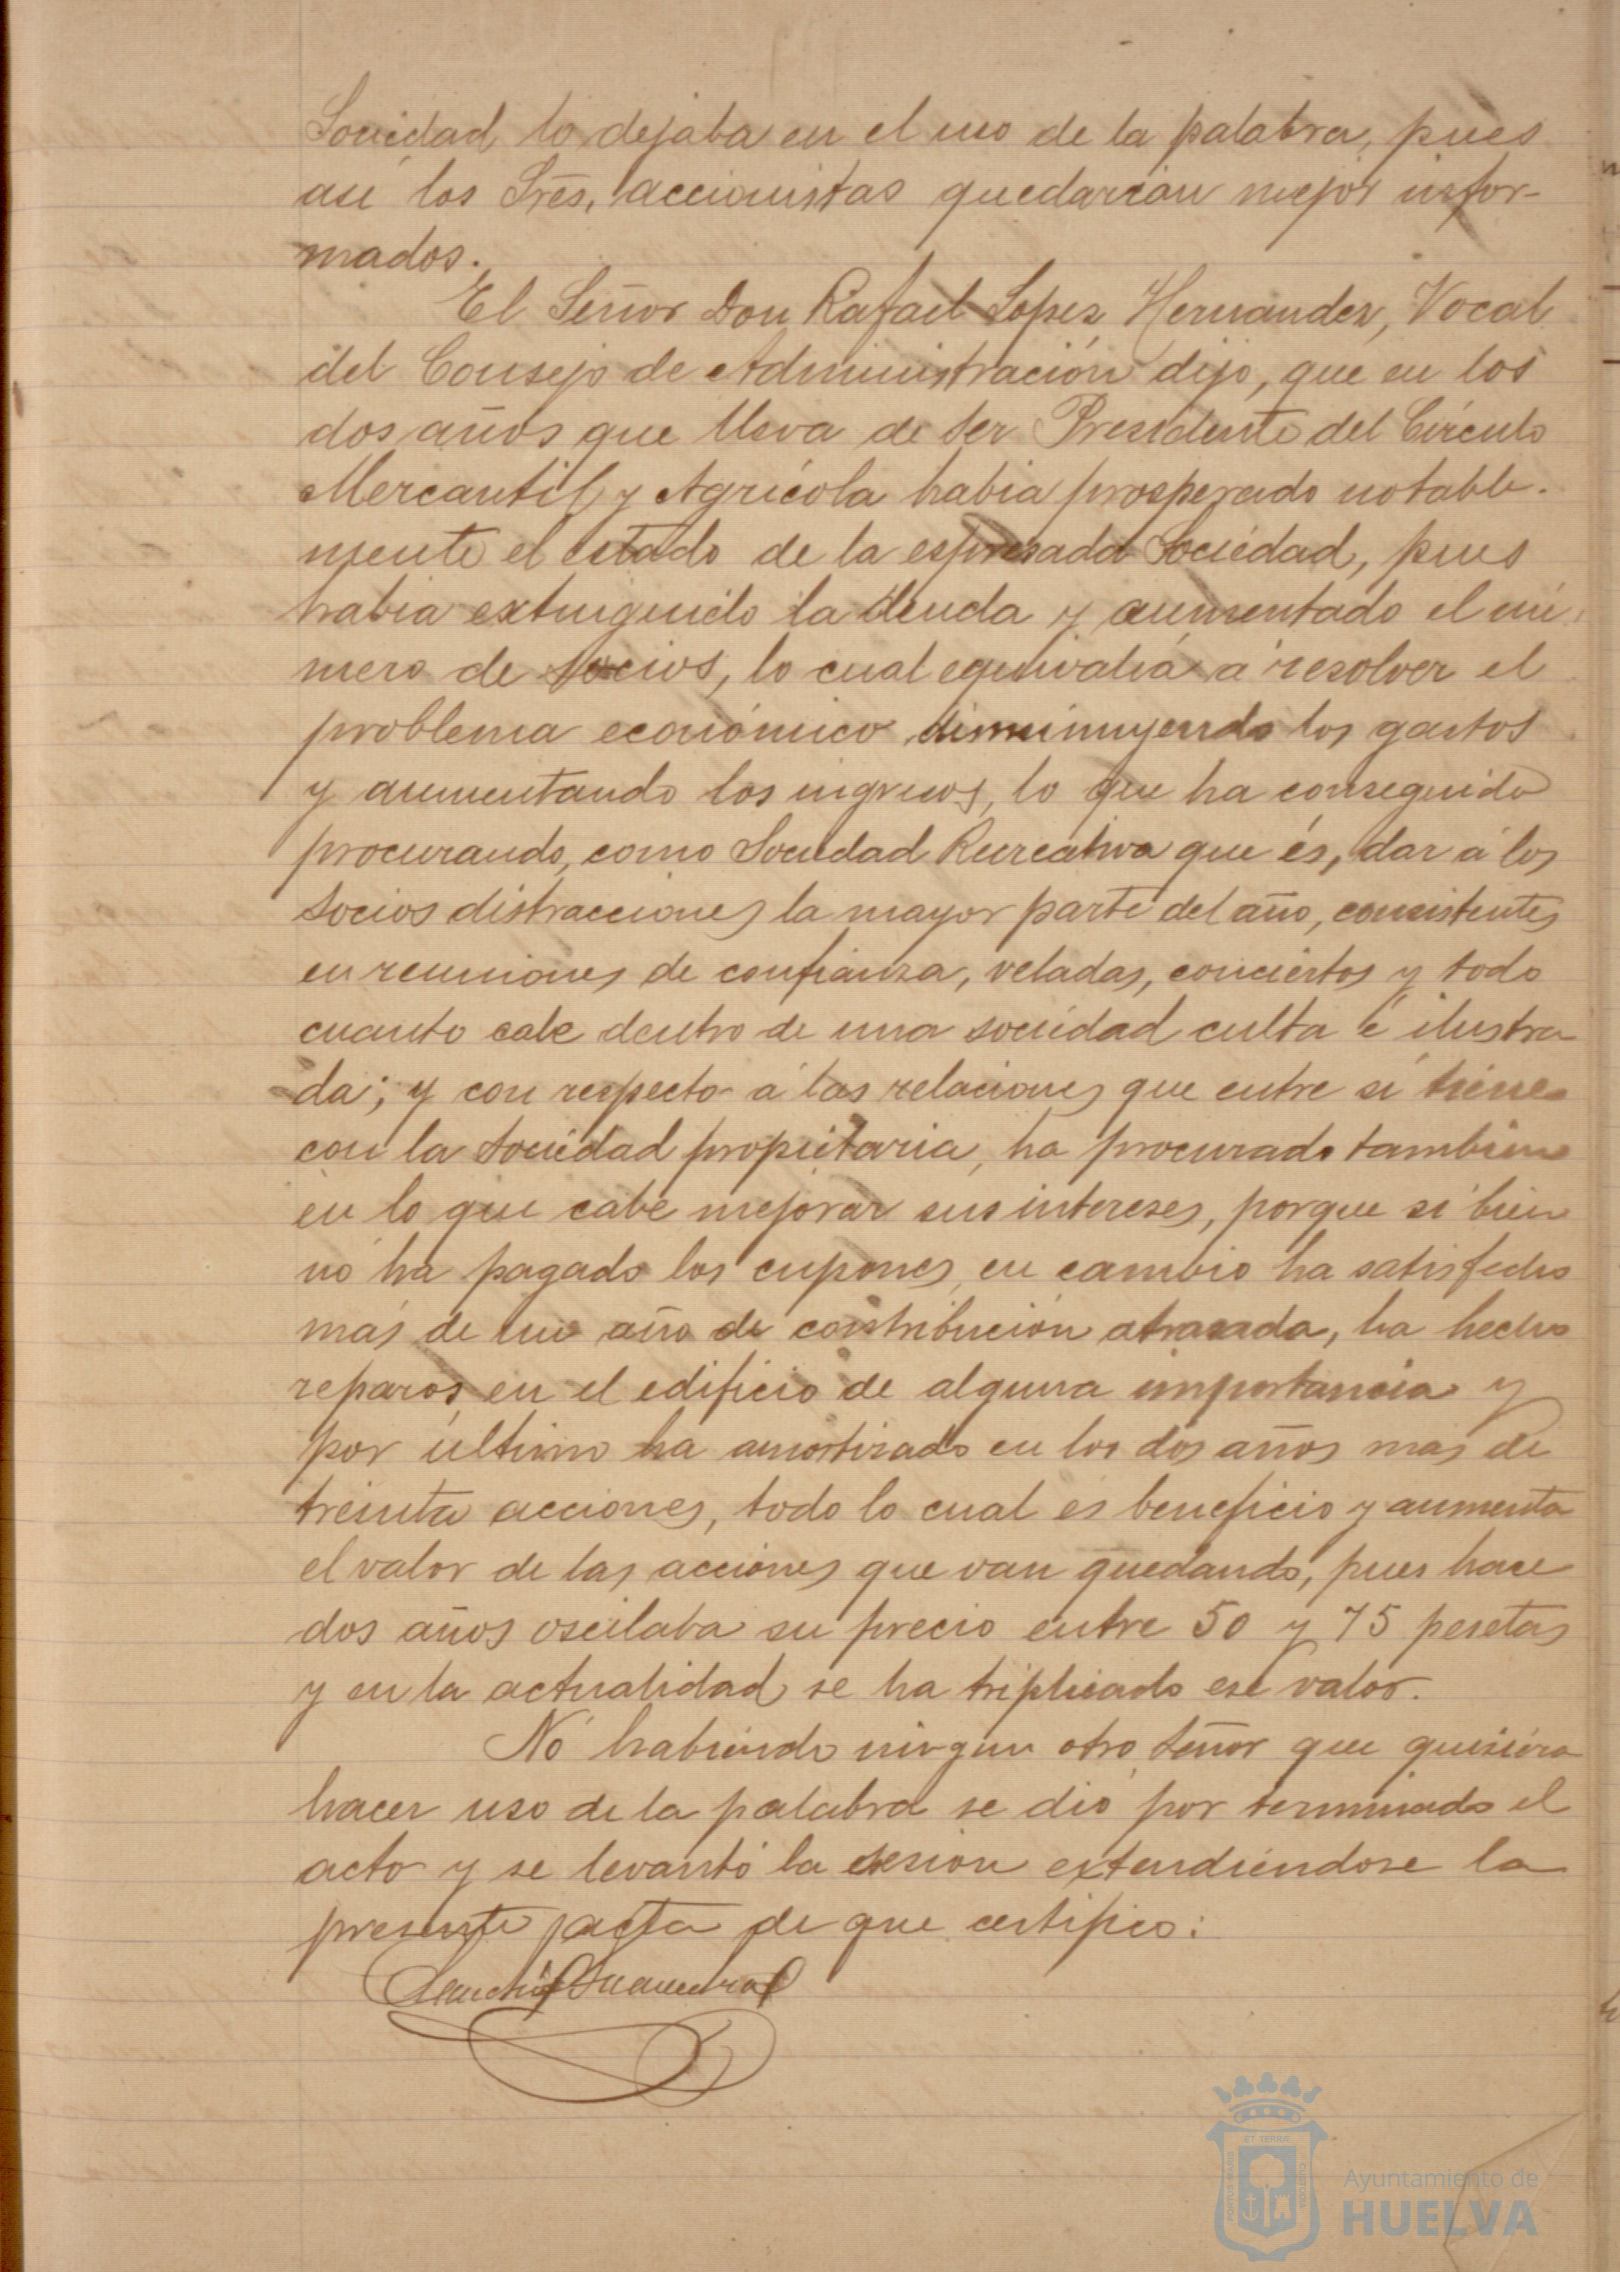 Sociedad lo dejaba en el uso de la palabra, pues
asi los Sres, accionistas quedarian mejor infor-
mados.
El Señor Don Rafael Lopez Hernandez, Vocal
del Consejo de Administración dijo, que en los
dos años que lleva de ser Presidente del Círculo
Mercantil y Agrícola habia prosperado notable-
mente el estado de la espresada Sociedad, pues
habia extinguido la deuda y aumentado el nú-
mero de socios, lo cual equivalia á resolver el
problema económico, disminuyendo los gastos
y aumentando los ingresos, lo que ha conseguido
procurando, como Sociedad Recreativa que és, dar á los
socios distracciones la mayor parte del año, consistentes
en reuniones de confianza, veladas, conciertos y todo
cuanto cabe dentro de una sociedad culta é ilustra
da; y con respecto á las relaciones que entre sí tiene
con la Sociedad propietaria, ha procurado tambien
en lo que cabe mejorar sus intereses, porque si bien
no ha pagado los cupones, en cambio ha satisfecho
más de un año de contribución atrasada, ha hecho
reparos en el edificio de alguna importancia y
por último ha amortizado en los dos años mas de
treinta acciones, todo lo cual és beneficio y aumenta
el valor de las acciones que van quedando, pues hace
dos años oscilaba su precio entre 50 y 75 pesetas
y en la actualidad se ha triplicado ese valor.
No habiendo ningun otro Señor que quisiera
hacer uso de la palabra se dió por terminado el
acto y se levantó la sesion extendiéndose la
presente acta de que certifico:
ET TERRÆ
PORTUS MARIS
CUSTODIA
Ayuntamiento de
HUELVA